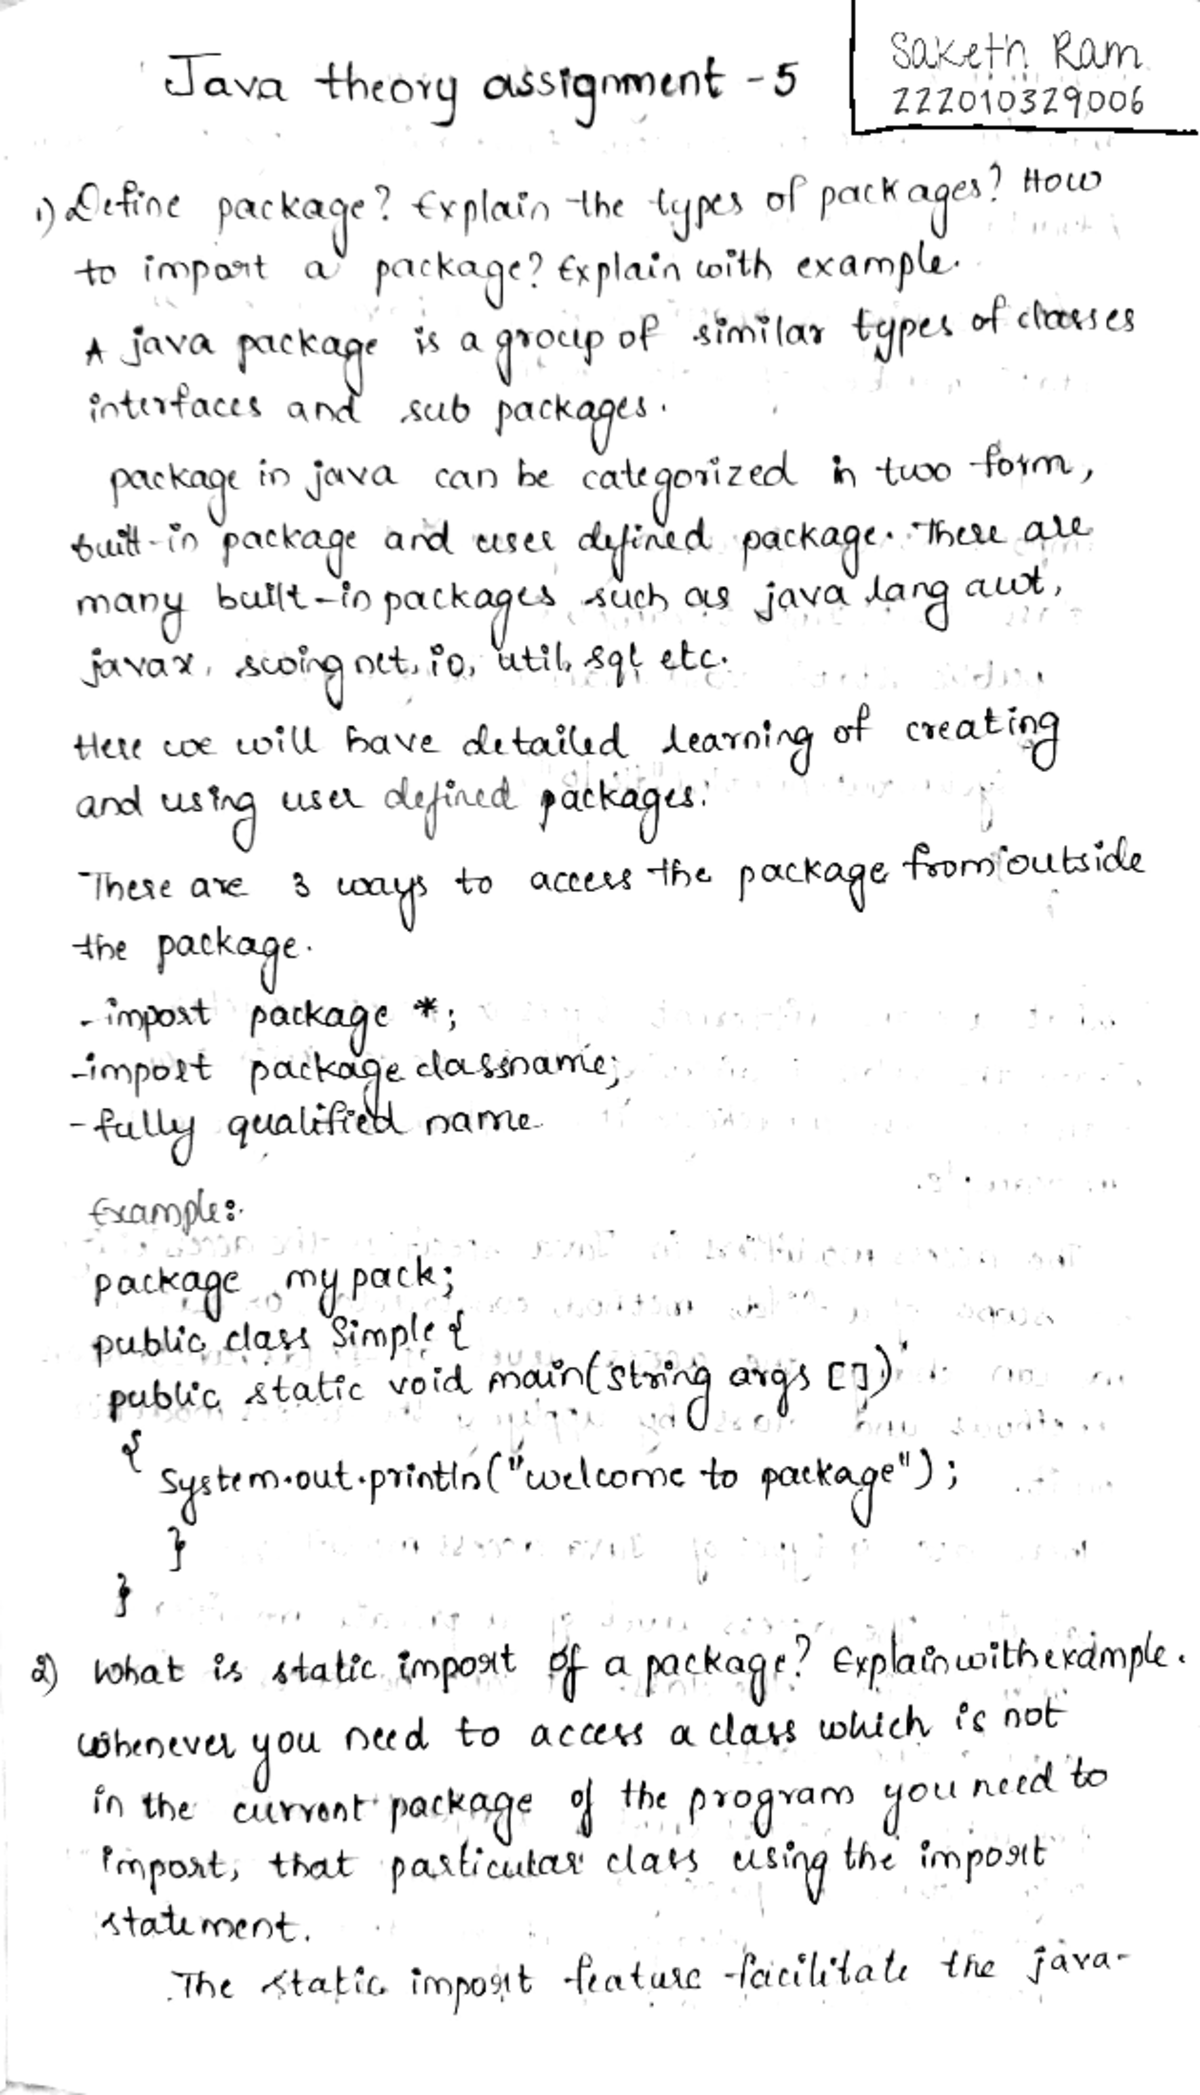 Java theory assignment - 5
Saketh Ram
222010329006
1) Define package? Explain the types of packages? How
to import a package? Explain with example.
A java package is a group of similar types of classes
interfaces and sub packages.
package in java can be categorized in two form,
built-in package and user defined package. There are
many built-in packages such as java lang awt,
javax, swing net, io, util, sql etc.
Here we will have detailed learning of creating
and using user defined packages.
There are 3 ways to access the package from outside
the package.
- import package *;
- import package classname;
- fully qualified name
Example:
package my pack;
public class Simple {
public static void main(string args [])
{
System.out.println("welcome to package");
}
}
2) What is static import of a package? Explain with example.
Whenever you need to access a class which is not
in the current package of the program you need to
import, that particular class using the import
statement.
The static import feature facilitate the java-